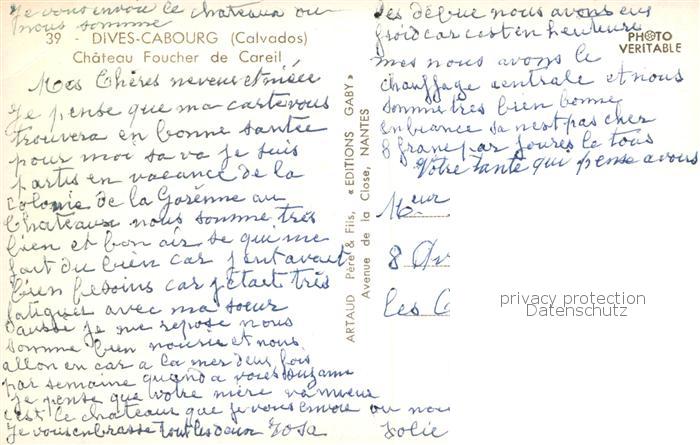 Je vous envoie le chateaux ou
nous somme
39 - DIVES-CABOURG (Calvados)
Château Foucher de Careil
Mes Chères neveux et nièce
Je pense que ma carte vous
trouvera en bonne santée
pour moi sa va je suis
partis en vacance de la
colonie de la Garenne au
Chateaux nous somme très
bien et bon air se qui me
fait du bien car j'ent avait
bien besoins car j'etait très
fatiguée avec ma soeur
aussi je me repose nous
somme bien nourie et nous
allon en car a la mer deux fois
par semaine quand a vous Suzanne
je pense que votre mère va mieux
c'est le chateaux que je vous envoie ou nous
Je vous enbrasse tout les deux Rosa
ARTAUD Père & Fils, « EDITIONS GABY »
Avenue de la Close, NANTES
PHOTO
VERITABLE
les début nous avons eus
froid car c'est en heuteure
mes nous avons le
chauffage centrale et nous
somme très bien bonne
enbiance sa n'est pas cher
8 franc par joures la tous
Votre tante qui pense a vous
Meur
8 Av
les C
Jolie
privacy protection
Datenschutz